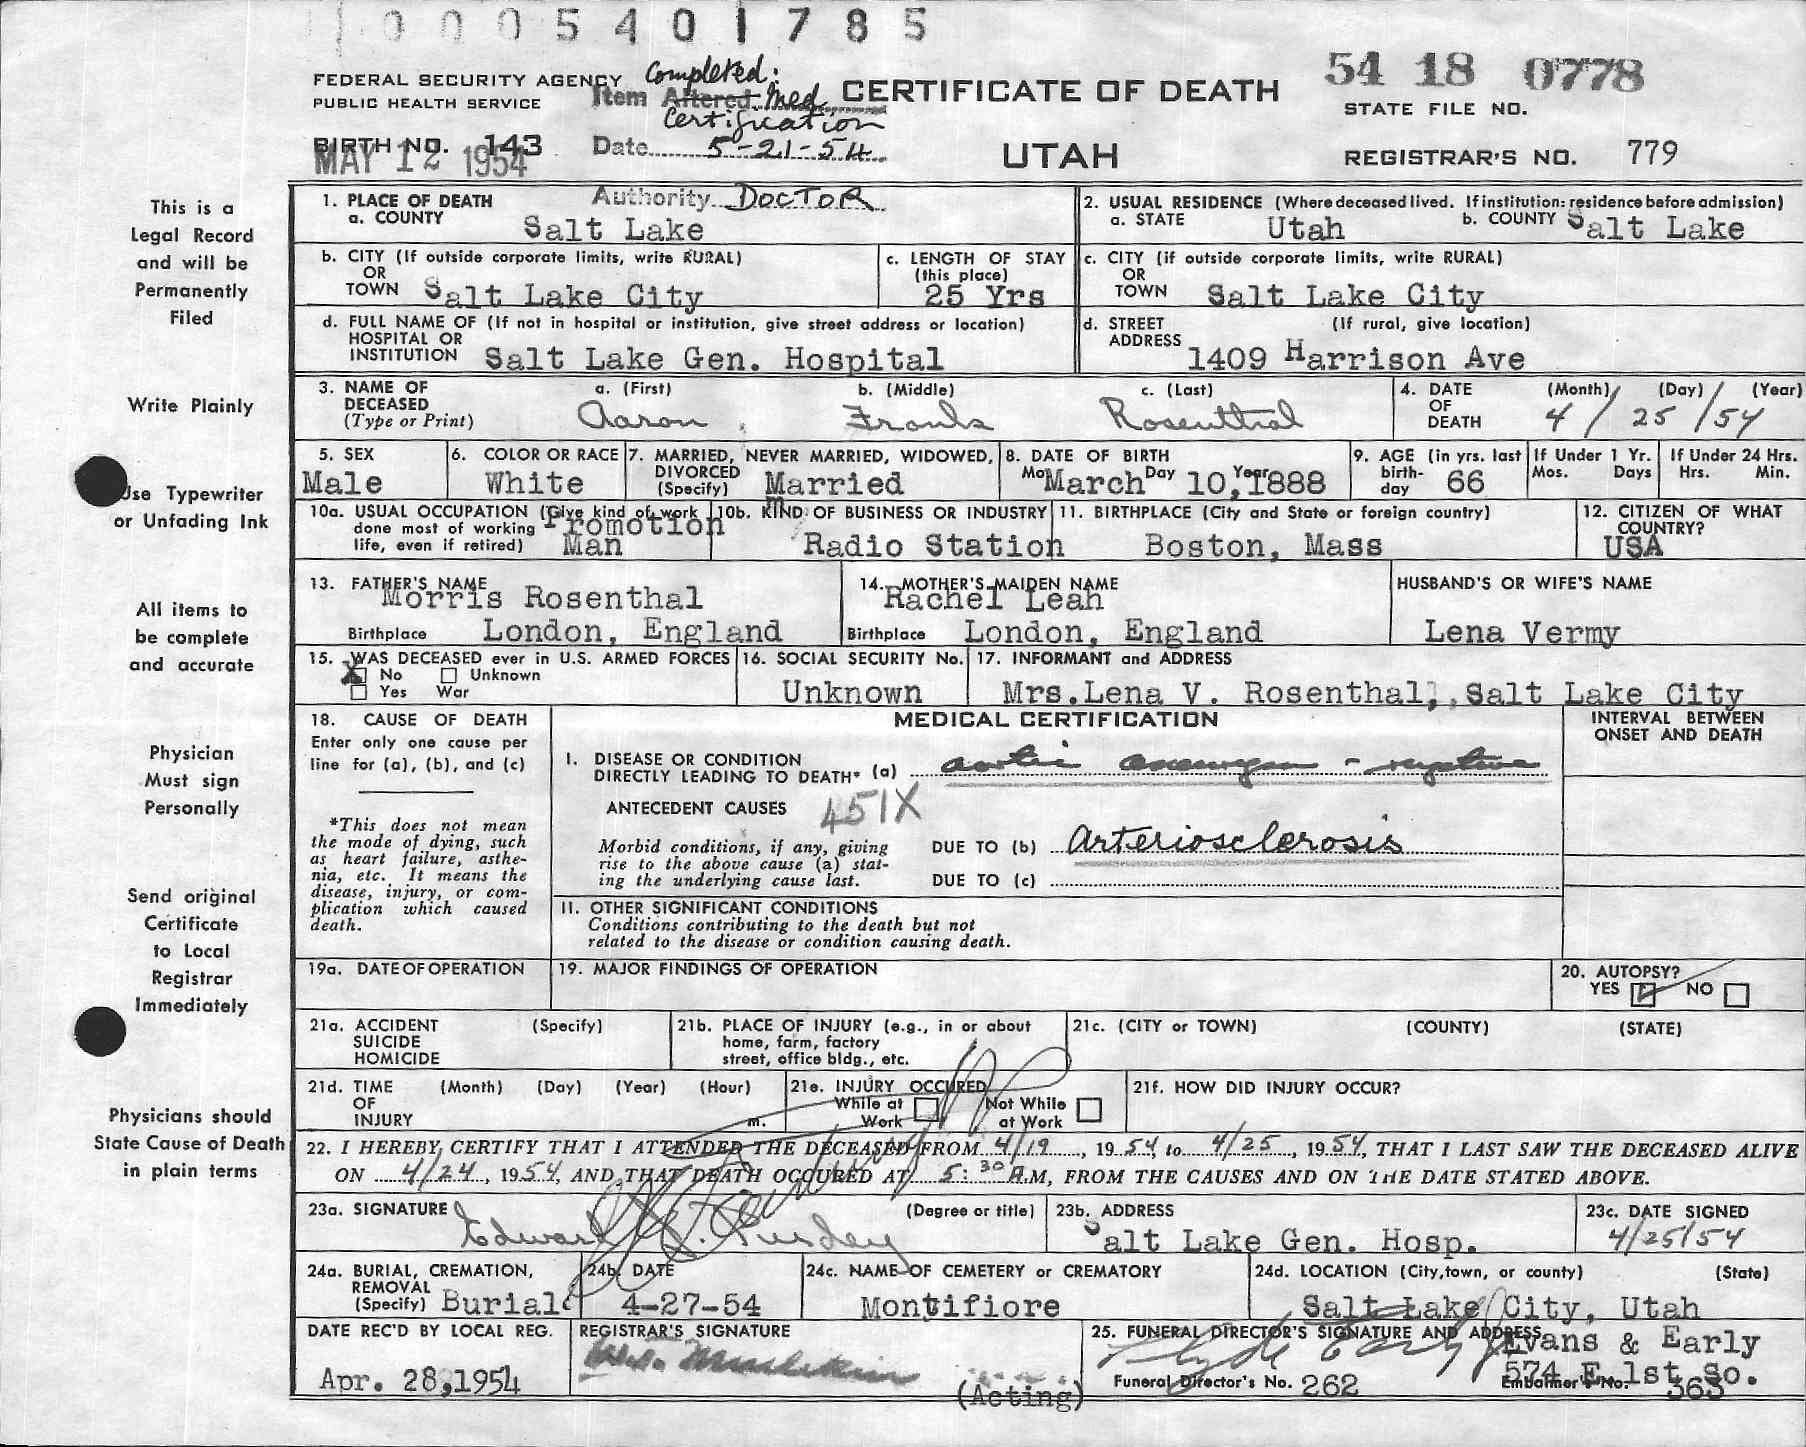 0005401785
FEDERAL SECURITY AGENCY
PUBLIC HEALTH SERVICE
Completed:
Item Altered Med
Certification
CERTIFICATE OF DEATH
54 18 0778
STATE FILE NO.
BIRTH NO. 143
MAY 12 1954
Date 5-21-54
UTAH
REGISTRAR'S NO. 779
Authority DOCTOR
This is a
Legal Record
and will be
Permanently
Filed
Write Plainly
Use Typewriter
or Unfading Ink
All items to
be complete
and accurate
Physician
Must sign
Personally
Send original
Certificate
to Local
Registrar
Immediately
Physicians should
State Cause of Death
in plain terms
1. PLACE OF DEATH
a. COUNTY Salt Lake
2. USUAL RESIDENCE (Where deceased lived. If institution: residence before admission)
a. STATE Utah b. COUNTY Salt Lake
b. CITY (If outside corporate limits, write RURAL)
OR
TOWN Salt Lake City
c. LENGTH OF STAY
(this place)
25 Yrs
c. CITY (if outside corporate limits, write RURAL)
OR
TOWN Salt Lake City
d. FULL NAME OF (If not in hospital or institution, give street address or location)
HOSPITAL OR
INSTITUTION Salt Lake Gen. Hospital
d. STREET (If rural, give location)
ADDRESS 1409 Harrison Ave
3. NAME OF a. (First) b. (Middle) c. (Last)
DECEASED
(Type or Print) Aaron Frank Rosenthal
4. DATE (Month) (Day) (Year)
OF
DEATH 4 / 25 / 54
5. SEX
Male
6. COLOR OR RACE
White
7. MARRIED, NEVER MARRIED, WIDOWED,
DIVORCED
(Specify) Married
8. DATE OF BIRTH
Mo. March Day 10, Year 1888
9. AGE (in yrs. last
birth-
day 66
If Under 1 Yr.
Mos. Days
If Under 24 Hrs.
Hrs. Min.
10a. USUAL OCCUPATION (Give kind of work
done most of working
life, even if retired) Promotion
Man
10b. KIND OF BUSINESS OR INDUSTRY
Radio Station
11. BIRTHPLACE (City and State or foreign country)
Boston, Mass
12. CITIZEN OF WHAT
COUNTRY?
USA
13. FATHER'S NAME
Morris Rosenthal
Birthplace London, England
14. MOTHER'S MAIDEN NAME
Rachel Leah
Birthplace London, England
HUSBAND'S OR WIFE'S NAME
Lena Vermy
15. WAS DECEASED ever in U.S. ARMED FORCES
X No Unknown
Yes War
16. SOCIAL SECURITY No.
Unknown
17. INFORMANT and ADDRESS
Mrs.Lena V. Rosenthal, Salt Lake City
18. CAUSE OF DEATH
Enter only one cause per
line for (a), (b), and (c)
*This does not mean
the mode of dying, such
as heart failure, asthe-
nia, etc. It means the
disease, injury, or com-
plication which caused
death.
MEDICAL CERTIFICATION
INTERVAL BETWEEN
ONSET AND DEATH
I. DISEASE OR CONDITION
DIRECTLY LEADING TO DEATH* (a) aortic aneurysm - rupture
ANTECEDENT CAUSES 451X
Morbid conditions, if any, giving
rise to the above cause (a) stat-
ing the underlying cause last.
DUE TO (b) Arteriosclerosis
DUE TO (c)
II. OTHER SIGNIFICANT CONDITIONS
Conditions contributing to the death but not
related to the disease or condition causing death.
19a. DATE OF OPERATION
19. MAJOR FINDINGS OF OPERATION
20. AUTOPSY?
YES NO
21a. ACCIDENT (Specify)
SUICIDE
HOMICIDE
21b. PLACE OF INJURY (e.g., in or about
home, farm, factory
street, office bldg., etc.
21c. (CITY or TOWN) (COUNTY) (STATE)
21d. TIME (Month) (Day) (Year) (Hour)
OF
INJURY m.
21e. INJURY OCCURED
While at
Work
Not While
at Work
21f. HOW DID INJURY OCCUR?
22. I HEREBY CERTIFY THAT I ATTENDED THE DECEASED FROM 4/19, 1954, to 4/25, 1954, THAT I LAST SAW THE DECEASED ALIVE
ON 4/24, 1954, AND THAT DEATH OCCURED AT 5:30 A.M, FROM THE CAUSES AND ON THE DATE STATED ABOVE.
23a. SIGNATURE (Degree or title)
Edward
23b. ADDRESS
Salt Lake Gen. Hosp.
23c. DATE SIGNED
4/25/54
24a. BURIAL, CREMATION,
REMOVAL
(Specify) Burial
24b. DATE
4-27-54
24c. NAME OF CEMETERY or CREMATORY
Montifiore
24d. LOCATION (City, town, or county) (State)
Salt Lake City, Utah
DATE REC'D BY LOCAL REG.
Apr. 28,1954
REGISTRAR'S SIGNATURE
(Acting)
25. FUNERAL DIRECTOR'S SIGNATURE AND ADDRESS
Clyde Early
Evans & Early
574 E 1st So.
Funeral Director's No. 262
Embalmer's No. 363